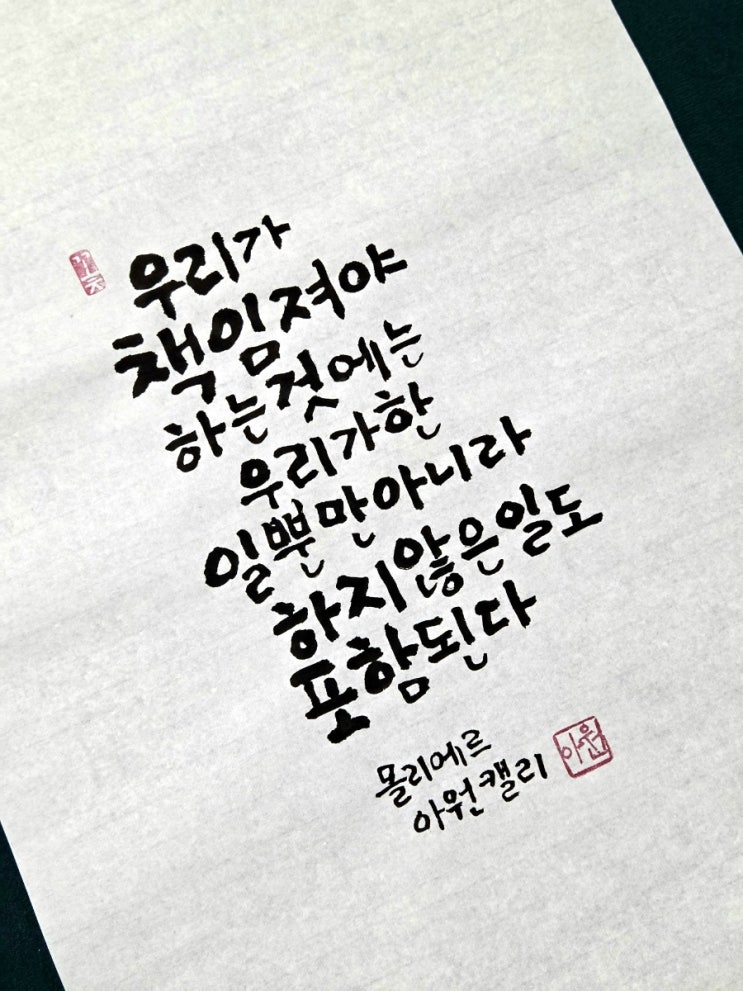 우리가
책임져야
하는것에는
우리가한
일뿐만아니라
하지않은일도
포함된다
몰리에르
아원캘리
아원